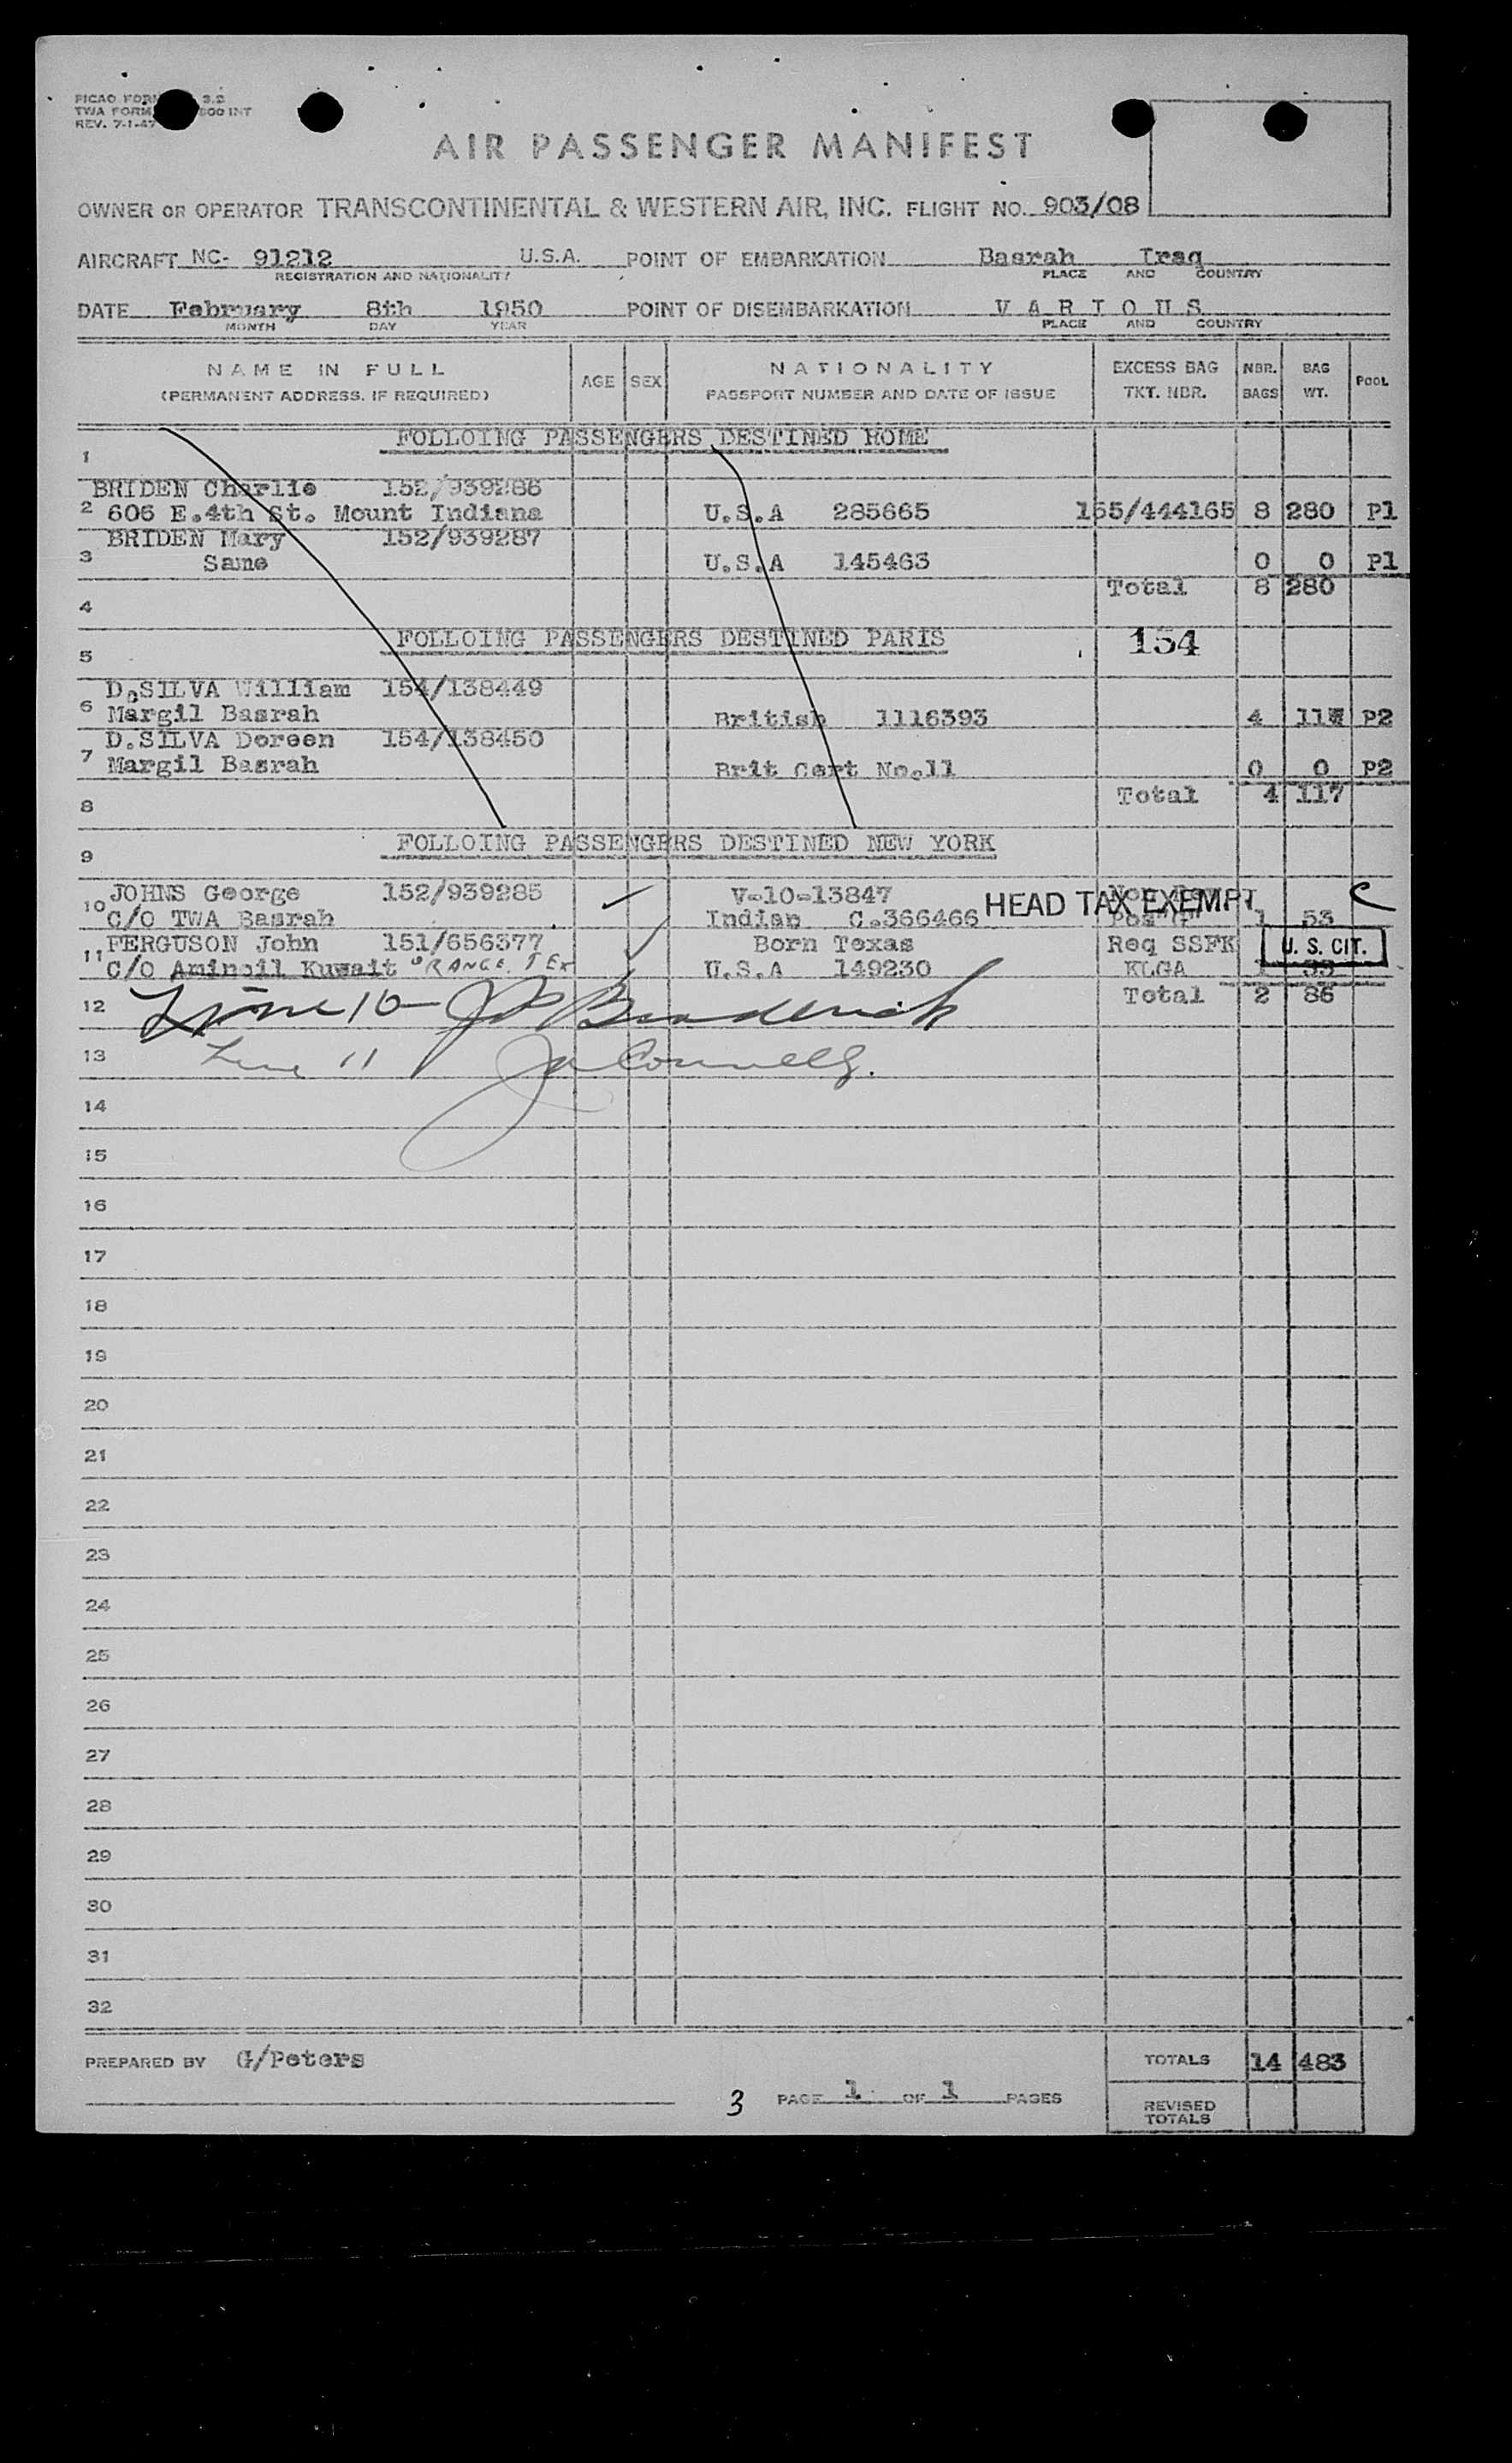 PICAO FORM 3.2
TWA FORM 800 INT
REV. 7-1-47
AIR PASSENGER MANIFEST
OWNER OR OPERATOR TRANSCONTINENTAL & WESTERN AIR, INC. FLIGHT NO. 903/08
AIRCRAFT NC- 91212 U.S.A. POINT OF EMBARKATION Basrah Iraq
REGISTRATION AND NATIONALITY PLACE AND COUNTRY
DATE February 8th 1950 POINT OF DISEMBARKATION V A R I O U S
MONTH DAY YEAR PLACE AND COUNTRY
NAME IN FULL AGE SEX NATIONALITY EXCESS BAG NBR. BAG POOL
(PERMANENT ADDRESS, IF REQUIRED) PASSPORT NUMBER AND DATE OF ISSUE TKT. NBR. BAGS WT.
FOLLOING PASSENGERS DESTINED ROME
1
BRIDEN Charlie 152/939286
2 606 E.4th St. Mount Indiana U.S.A 285665 155/444165 8 280 P1
BRIDEN Mary 152/939287
3 Same U.S.A 145463 0 0 P1
Total 8 280
4
FOLLOING PASSENGERS DESTINED PARIS 154
5
D.SILVA William 154/138449
6 Margil Basrah British 1116393 4 117 P2
D.SILVA Doreen 154/138450
7 Margil Basrah Brit Cert No.11 0 0 P2
Total 4 117
8
FOLLOING PASSENGERS DESTINED NEW YORK
9
JOHNS George 152/939285 ✓ V-10-13847 HEAD TAX EXEMPT C
10 C/O TWA Basrah Indian C.366466 Pos"G" 1 53
FERGUSON John 151/656377 ✓ Born Texas Req SSFK U. S. CIT.
11 C/O Aminoil Kuwait ORANGE. TEX U.S.A 149230 KLGA 1 33
Total 2 86
12 Line 10 JP Broderick
13 Line 11 Connelly.
14
15
16
17
18
19
20
21
22
23
24
25
26
27
28
29
30
31
32
PREPARED BY G/Peters TOTALS 14 483
3 PAGE 1 OF 1 PAGES REVISED
TOTALS